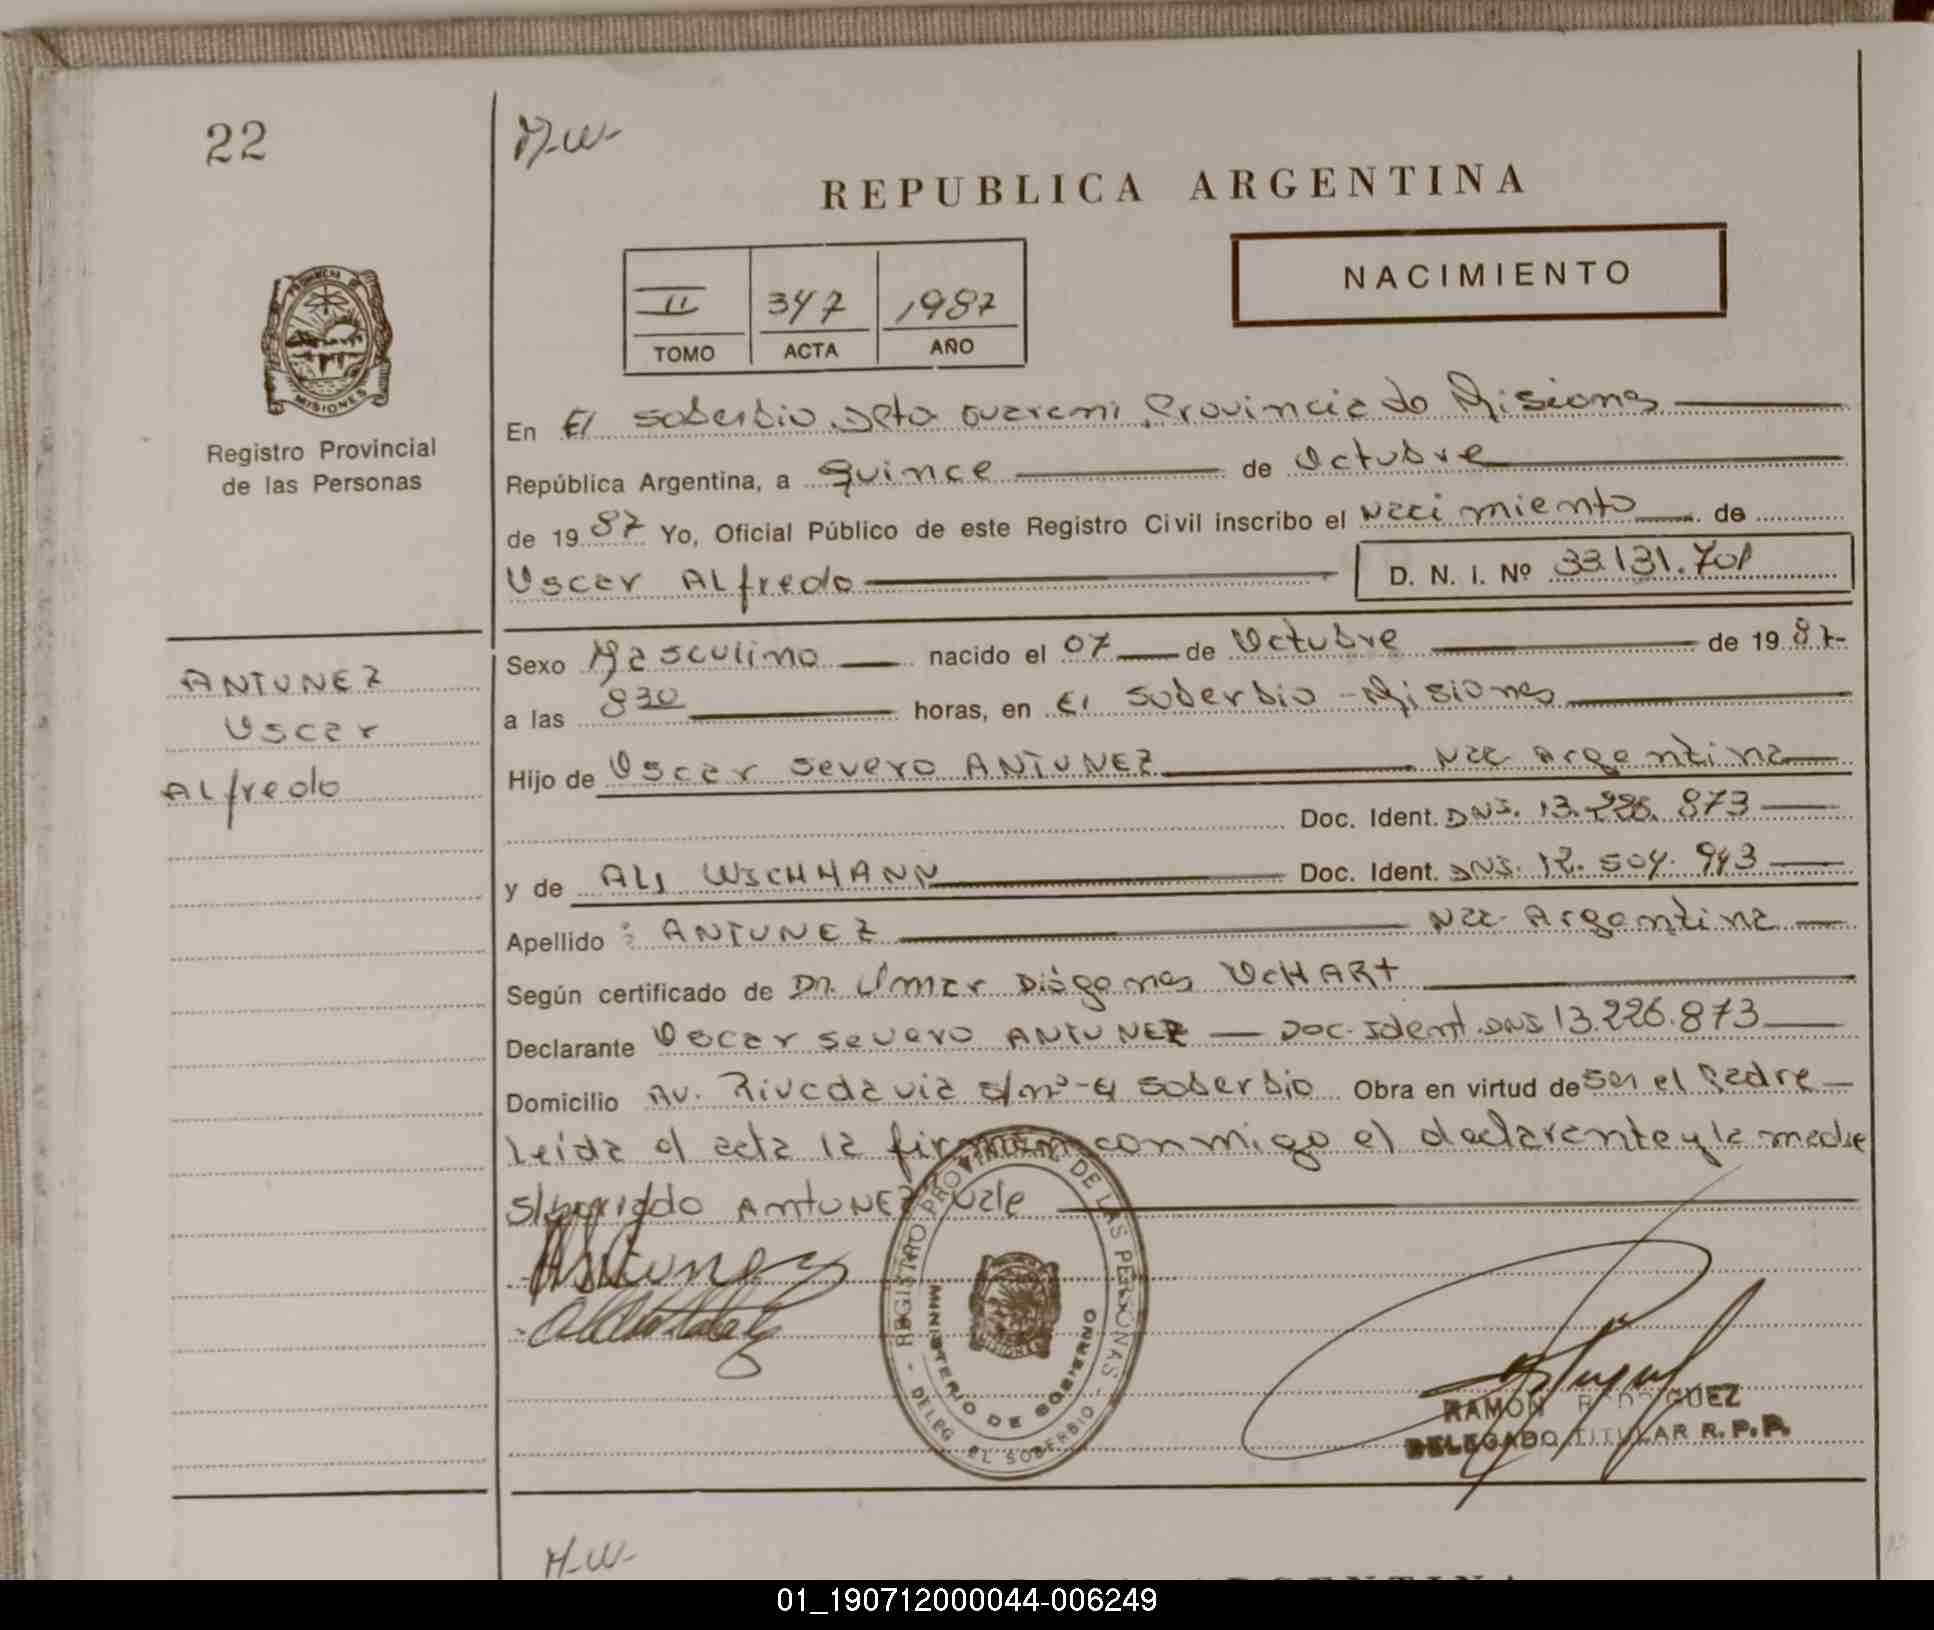 22
M-W-
REPUBLICA ARGENTINA
II 347 1987
TOMO ACTA AÑO
NACIMIENTO
PROVINCIA DE
MISIONES
Registro Provincial
de las Personas
En El Soberbio Dpto Guarani Provincia de Misiones
República Argentina, a Quince de Octubre
de 1987 Yo, Oficial Público de este Registro Civil inscribo el Nacimiento de
Oscar ALfredo D. N. I. Nº 33.131.701
Sexo Masculino nacido el 07 de Octubre de 1987
a las 830 horas, en El Soberbio - Misiones
Hijo de Oscar Severo ANTUNEZ Nac Argentina
Doc. Ident. DNI. 13.226.873
y de ALI WICHMANN Doc. Ident. DNI. 12.504.943
Apellido : ANTUNEZ Nac. Argentina
Según certificado de Dr. Omar Diógenes OcHARt
Declarante Oscar Severo ANTUNEZ Doc. Ident. DNI 13.226.873
Domicilio Av. Rivadavia s/nº - El Soberbio Obra en virtud de Ser el Padre
Leida el acta la firman conmigo el declarante y la madre
ANtUNEZ vale
ANTUNEZ
Oscar
ALfredo
REGISTRO PROVINCIAL DE LAS PERSONAS
MINISTERIO DE GOBIERNO
DELEG EL SOBERBIO
RAMON RODRIGUEZ
DELEGADO TITULAR R.P.P.
M-W-
01_190712000044-006249